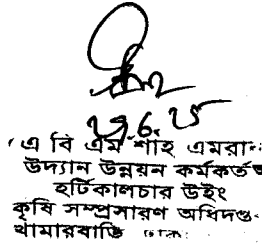 এ বি এম শাহ এমরান
উদ্যান উন্নয়ন কর্মকর্তা
হর্টিকালচার উইং
কৃষি সম্প্রসারণ অধিদপ্তর
খামারবাড়ি ঢাকা